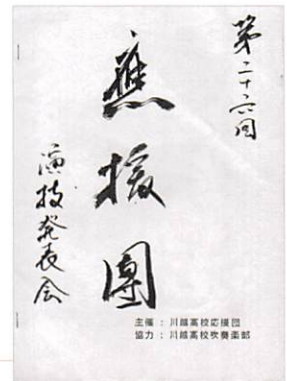 第二十六回
應援團
演技発表会
主催 : 川越高校応援団
協力 : 川越高校吹奏楽部